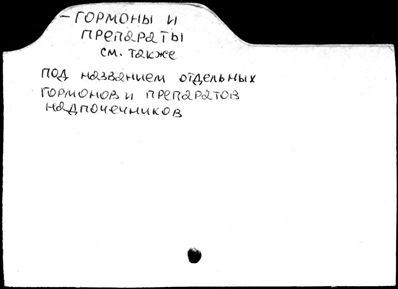 – ГОРМОНЫ И
ПРЕПАРАТЫ
см. также
под названием отдельных
гормонов и препаратов
надпочечников